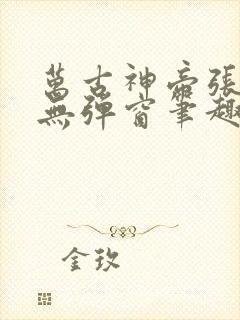 萬古神帝張
無彈窗筆趣
金玫